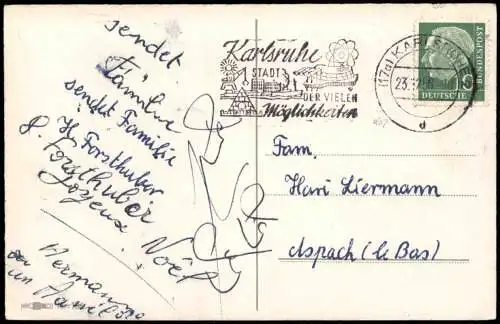 sendet
Familie
sendet Familie
H. Forsthuber
Forsthuber
Joyeux Noël
Karlsruhe
STADT
DER VIELEN
Möglichkeiten
(17a) KARLSRUHE
23.12.56
d
DEUTSCHE BUNDESPOST
Fam.
Hari Liermann
Aspach (le Bas)